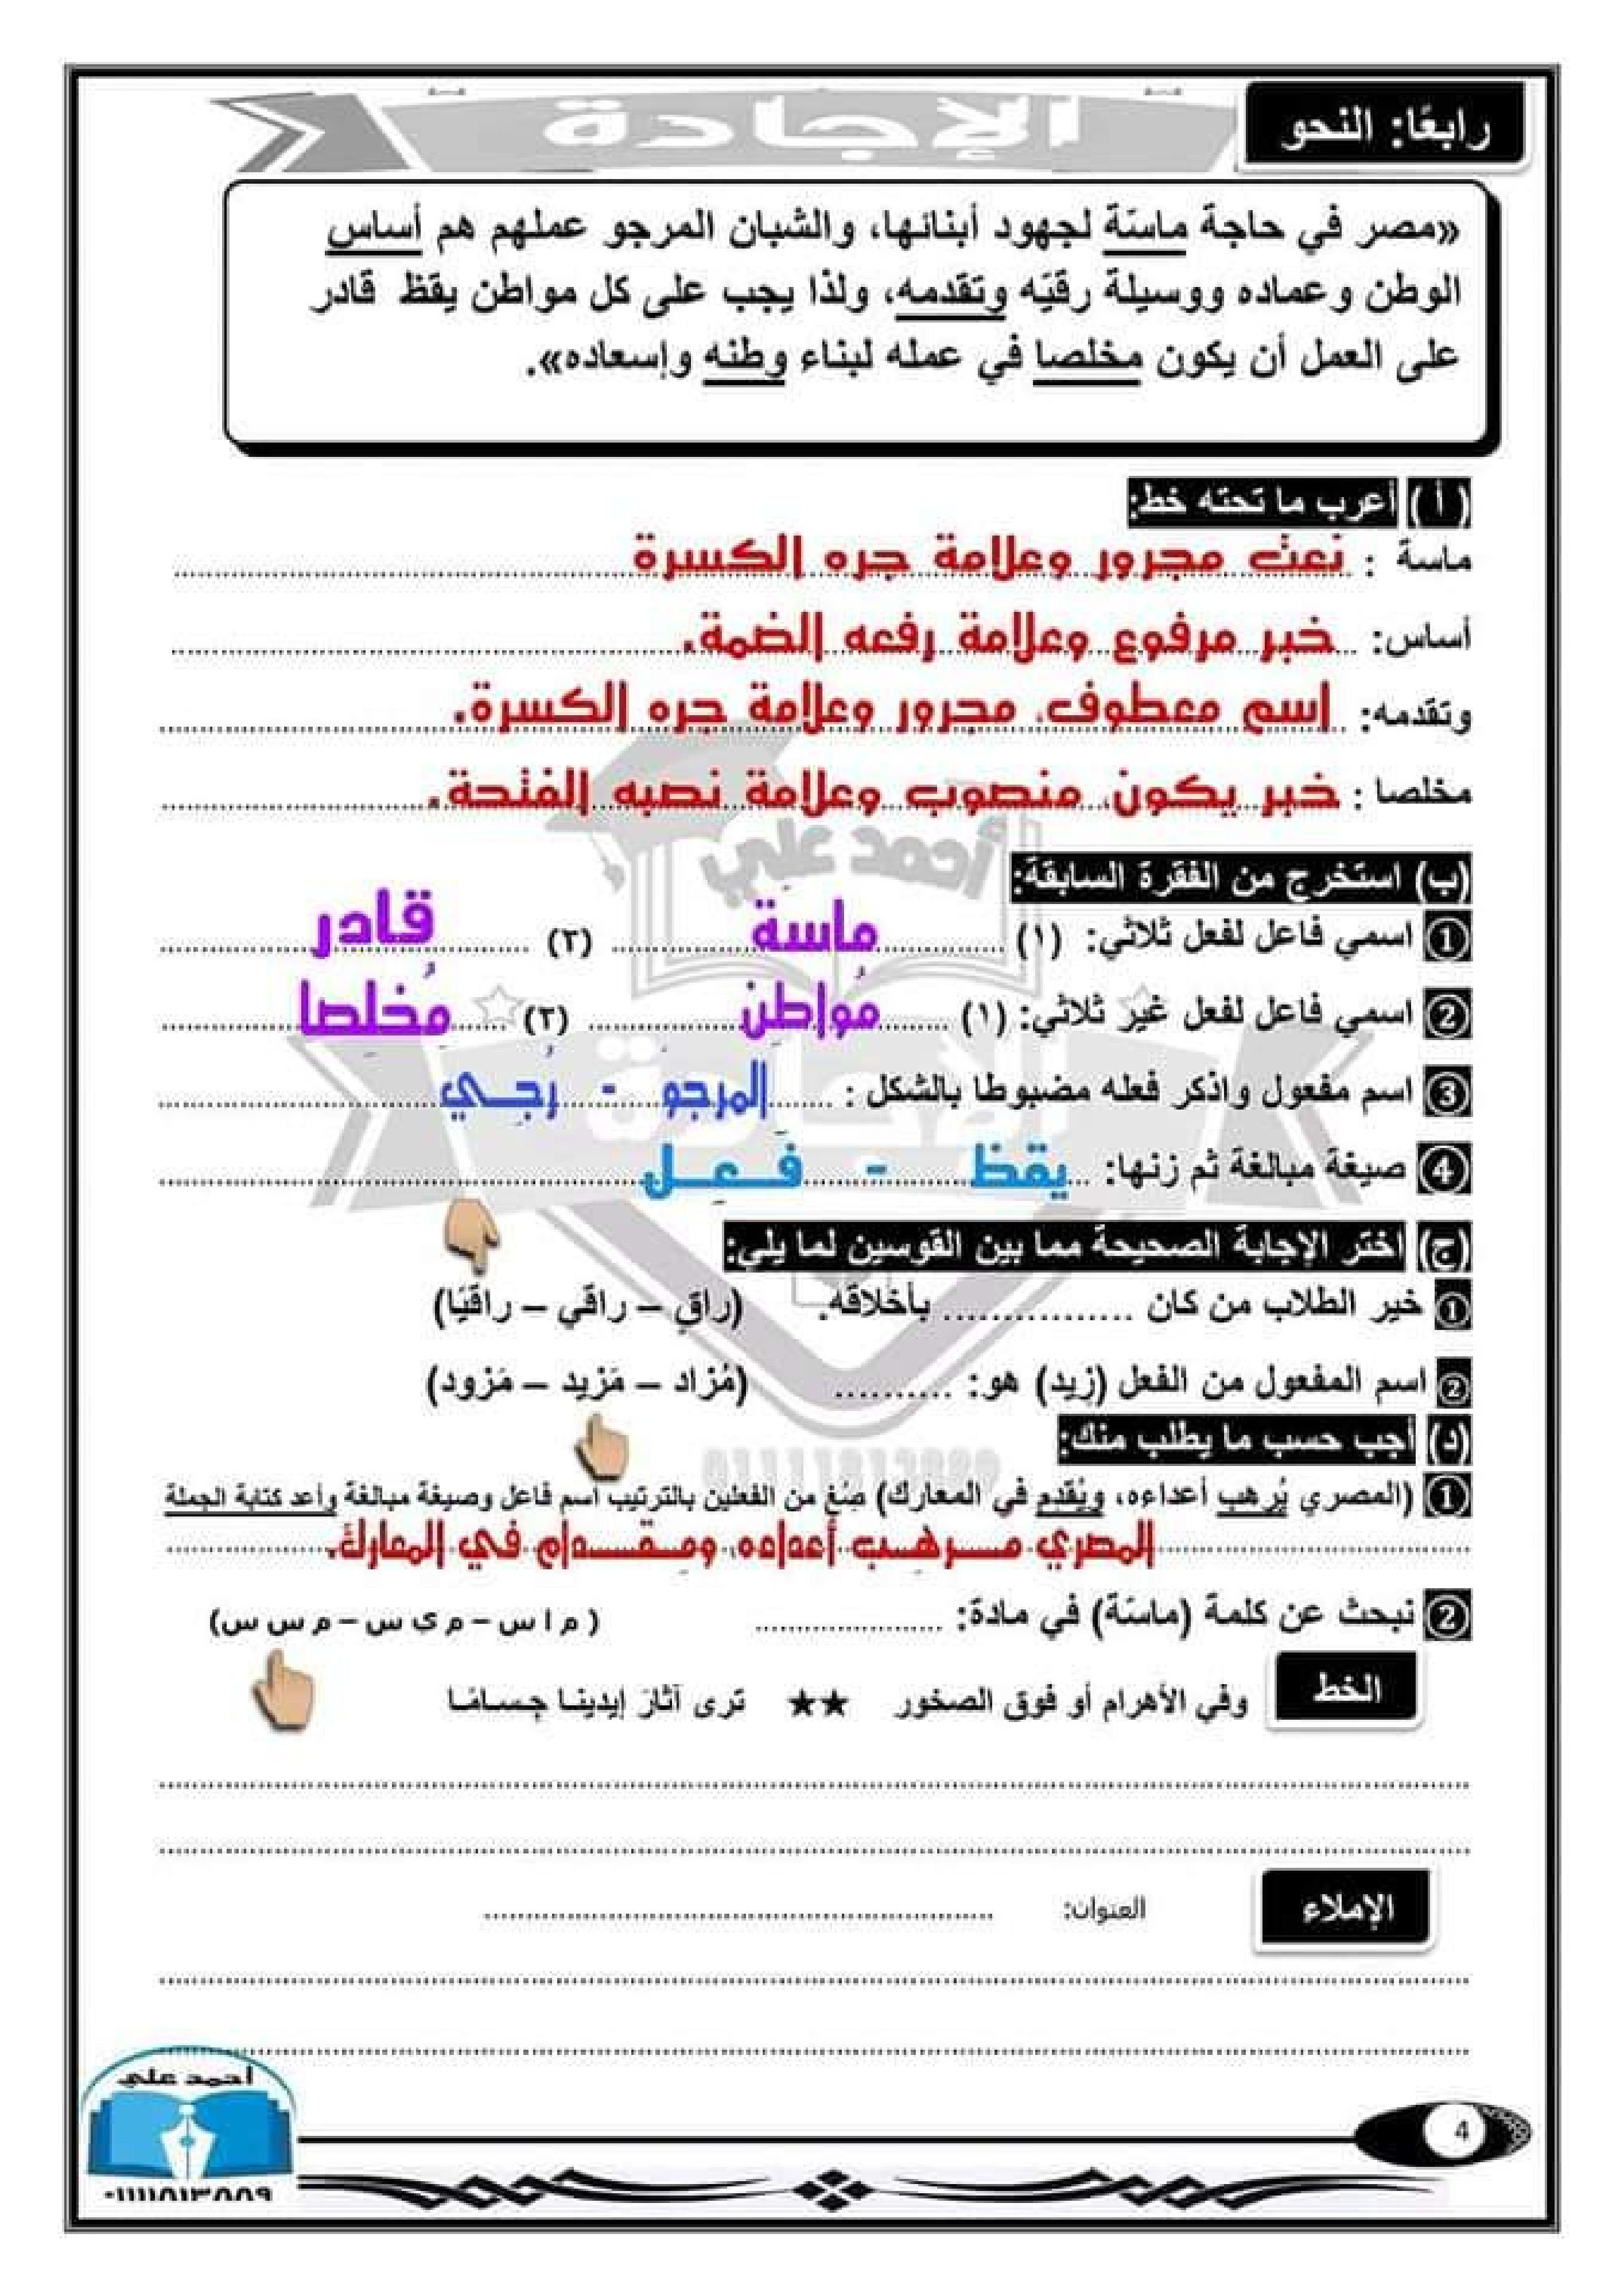 رابعًا: النحو
الإجادة
«مصر في حاجة ماسّة لجهود أبنائها، والشبان المرجو عملهم هم أساس
الوطن وعماده ووسيلة رقيّه وتقدمه، ولذا يجب على كل مواطن يقظ قادر
على العمل أن يكون مخلصا في عمله لبناء وطنه وإسعاده».
( أ ) أعرب ما تحته خط:
ماسة : نعت مجرور وعلامة جره الكسرة
أساس: خبر مرفوع وعلامة رفعه الضمة.
وتقدمه: اسم معطوف، مجرور وعلامة جره الكسرة.
مخلصا : خبر يكون، منصوب وعلامة نصبه الفتحة.
أحمد علي
(ب) استخرج من الفقرة السابقة:
1 اسمي فاعل لفعل ثلاثي: (١) ماسَّة (٢) قادر
2 اسمي فاعل لفعل غير ثلاثي: (١) مُواطِن (٢) مُخلِصا
3 اسم مفعول واذكر فعله مضبوطا بالشكل : المرجوّ - رُجِي
الإجادة
4 صيغة مبالغة ثم زنها: يقظ - فَعِل
(ج) اختر الإجابة الصحيحة مما بين القوسين لما يلي:
1 خير الطلاب من كان ................ بأخلاقه. (راقٍ – راقي – راقيًا)
2 اسم المفعول من الفعل (زيد) هو: .......... (مُزاد – مَزيد – مَزود)
(د) أجب حسب ما يطلب منك:
1 (المصري يُرهب أعداءه، ويُقدم في المعارك) صِغ من الفعلين بالترتيب اسم فاعل وصيغة مبالغة وأعد كتابة الجملة
المصري مرهِب أعداءه، ومِقدام في المعارك.
2 نبحث عن كلمة (ماسّة) في مادة: .................... ( م ا س – م ي س – م س س)
الخط
وفي الأهرام أو فوق الصخور ★★ ترى آثارَ إيدينا جِسامًا
الإملاء
العنوان:
أحمد علي
٠١١١١٨١٣٨٨٩
4